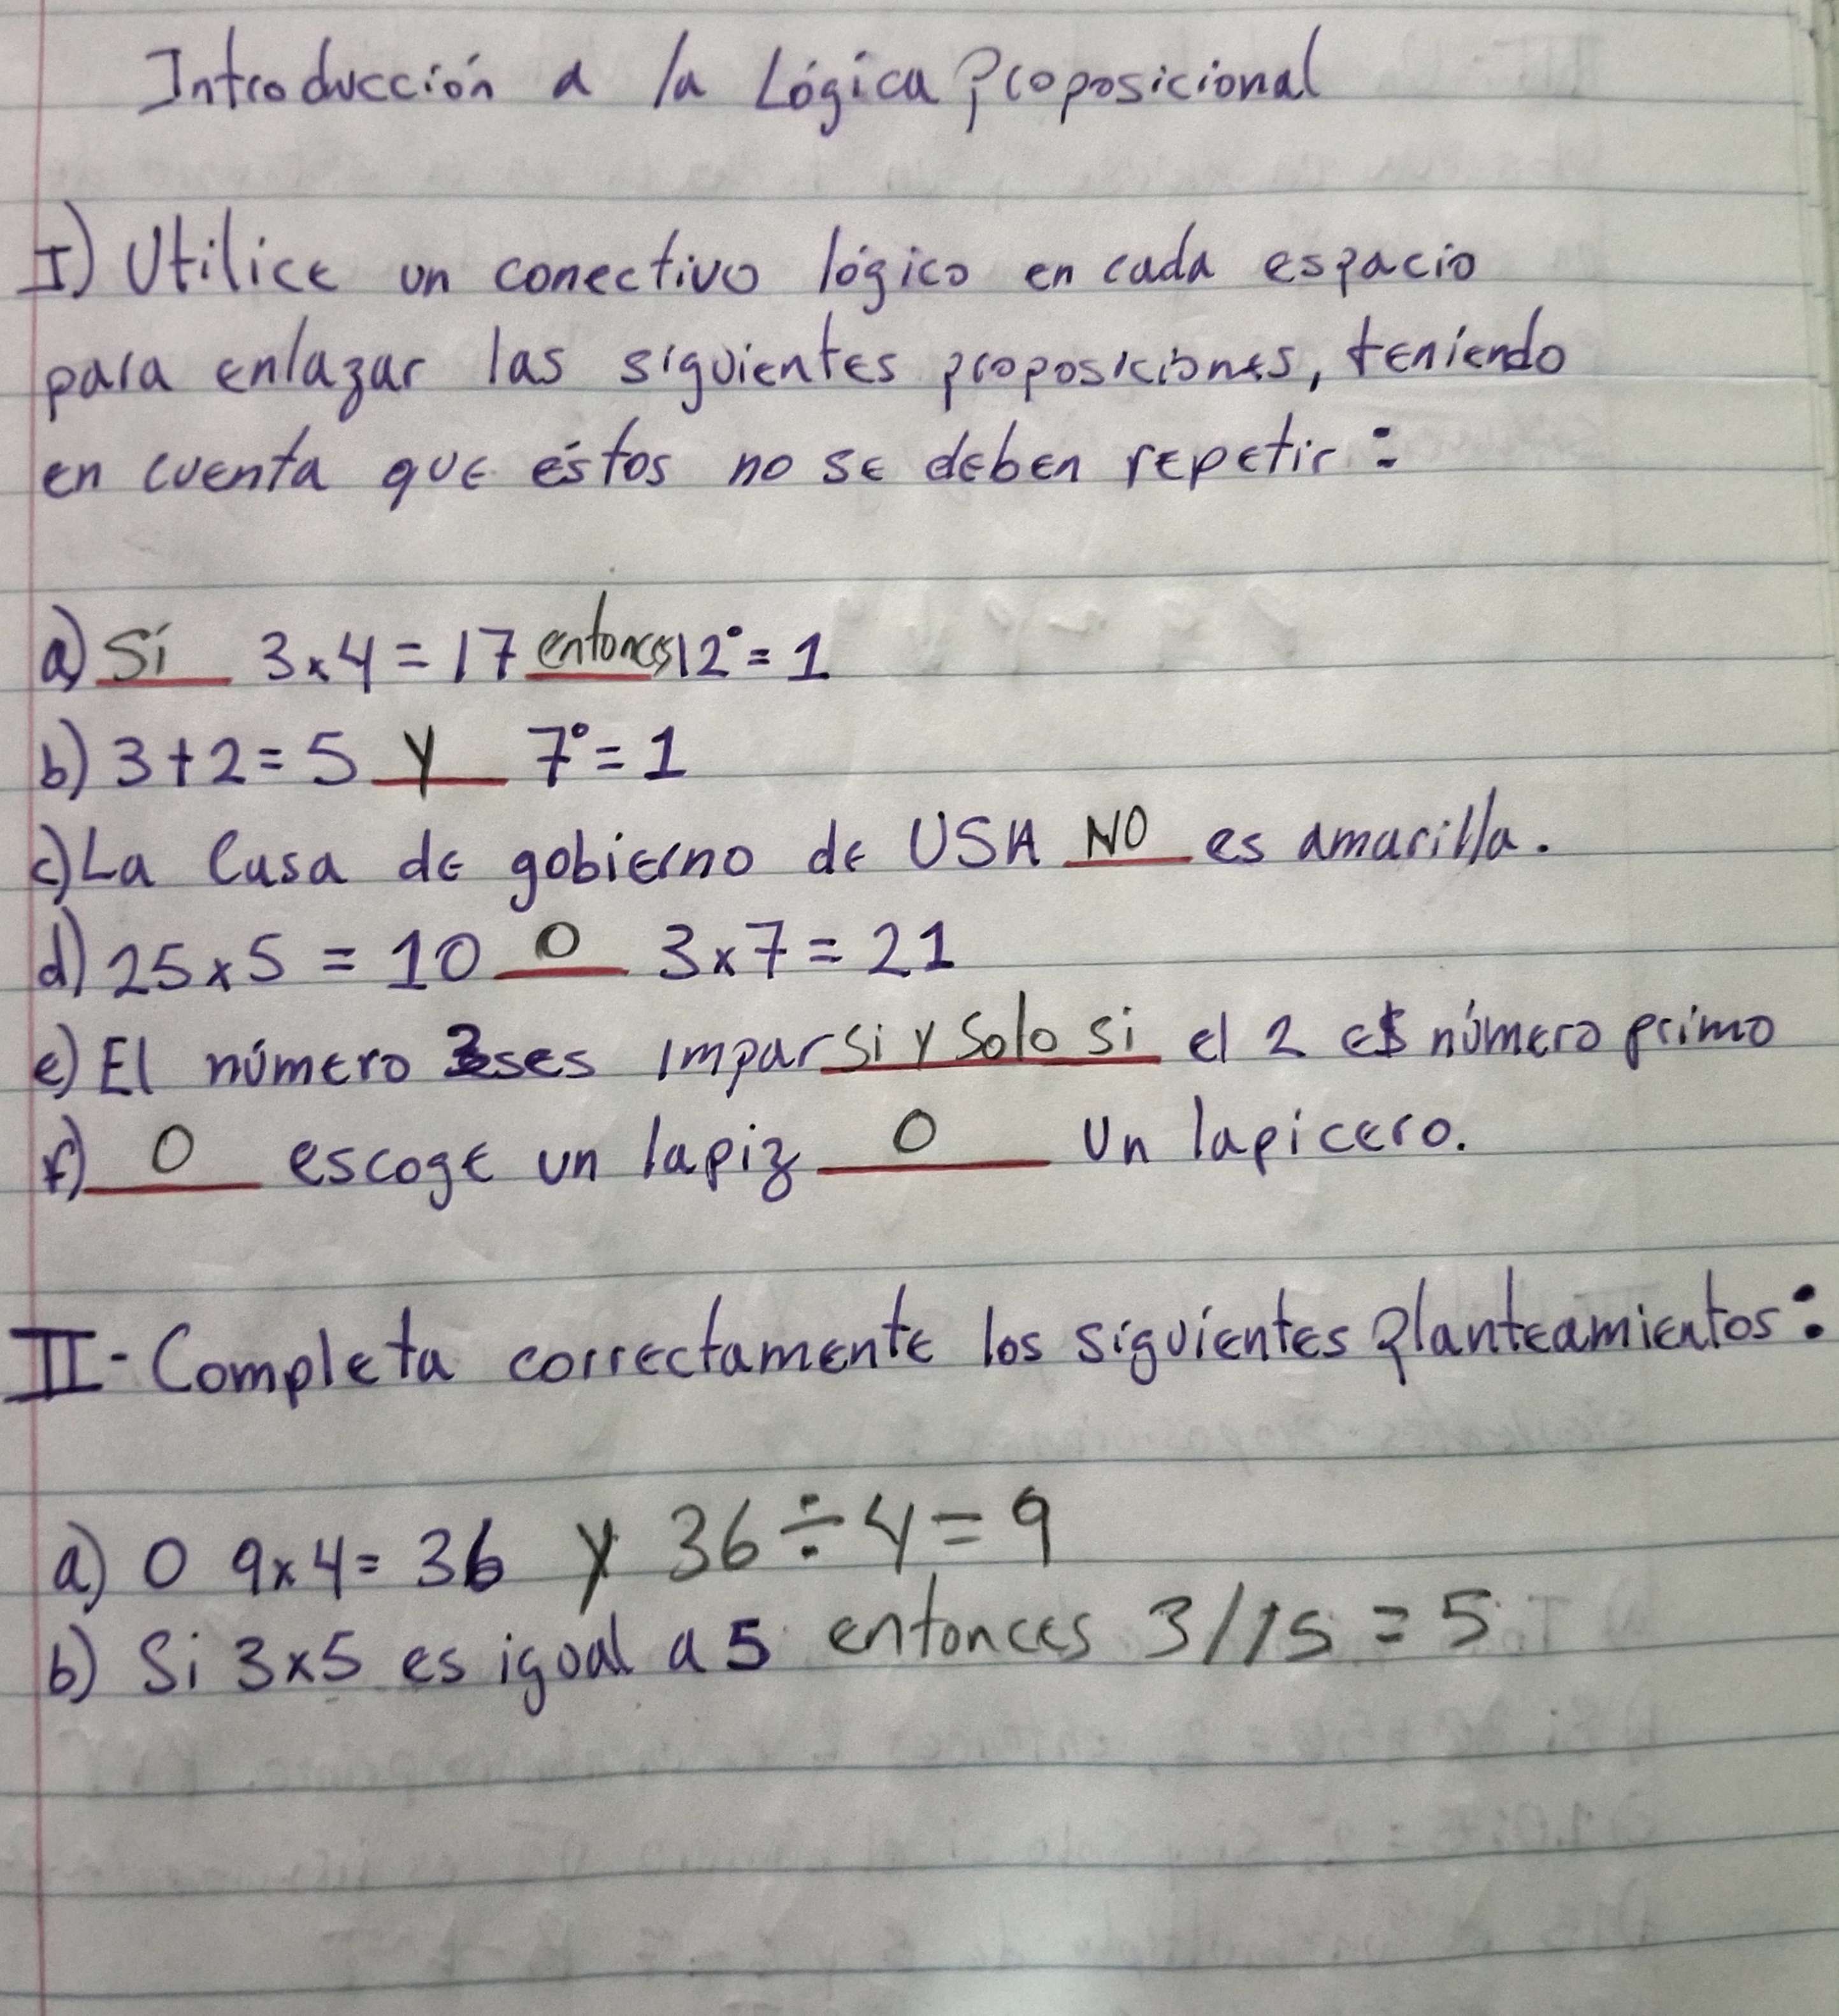 Introducción a la Lógica Proposicional
I) Utilice un conectivo lógico en cada espacio
para enlazar las siguientes proposiciones, teniendo
en cuenta que éstos no se deben repetir:
a) Sí 3x4=17 entonces 12°=1
b) 3+2=5 y 7°=1
c) La Casa de gobierno de USA NO es amarilla.
d) 25x5=10 O 3x7=21
e) El número 3 es impar si y solo si el 2 es número primo
f) O escoge un lapiz O Un lapicero.
II-Completa correctamente los siguientes planteamientos:
a) O 9x4=36 y 36÷4=9
b) Si 3x5 es igual a 5 entonces 3/15=5